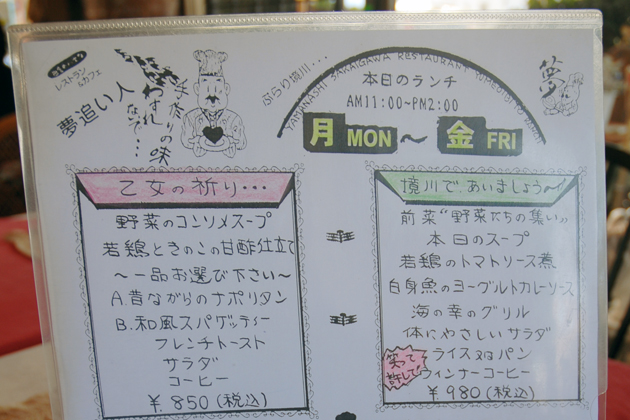 レストラン
&カフェ
夢追い人
手作りの味
わすれ
ないで…
ぶらり境川・・・
YAMANASHI SAKAIGAWA RESTAURANT YUMEOIBITO
本日のランチ
AM11:00~PM2:00
月 MON ~ 金 FRI
夢
乙女の祈り・・・
野菜のコンソメスープ
若鶏ときのこの甘酢仕立て
~一品お選び下さい~
A.昔ながらのナポリタン
B.和風スパゲッティー
フレンチトースト
サラダ
コーヒー
¥850(税込)
境川で、あいましょう~
前菜"野菜たちの集い"
本日のスープ
若鶏のトマトソース煮
白身魚のヨーグルトカレーソース
海の幸のグリル
体にやさしいサラダ
笑って
許して!
ライス又はパン
ウィンナーコーヒー
¥980(税込)